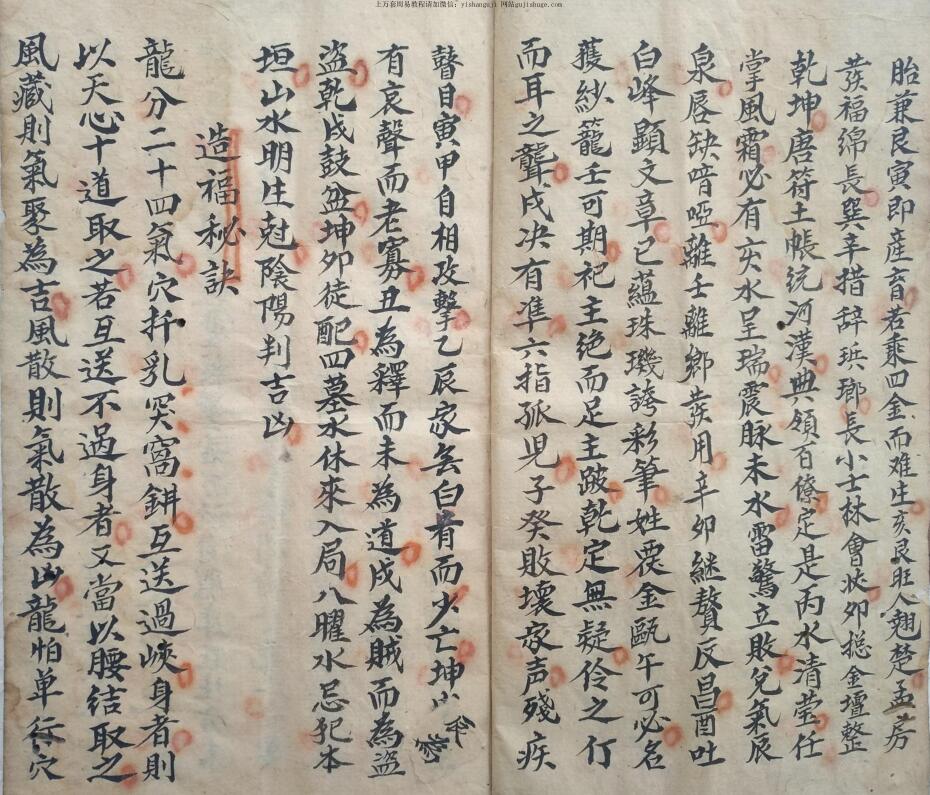 上万套周易教程请加微信：yishanguji 网站gujishuge.com
胎兼艮寅即産育若乘四金而难生亥艮旺人翘楚孟房
發福綿長巽辛措辞珎瑯長小士林會狀卯捴金壇整
乾坤唐符土帳統河漢典領百僚定是丙水清莹任
掌風霜必有亥水呈瑞震脉未水雷驚立敗兌氣辰
泉唇缺喑啞離壬離鄉發用辛卯継贅反昌酉吐
白峰顕文章巳藴珠璣誇彩筆姓覆金甌午可必名
獲紗籠壬可期祀主绝而足主跛乾定無疑伶之仃
而耳之聾戌决有凖六指孤児子癸敗壊家声残疾
瞽目寅甲自相攻擊乙辰家乏白首而少亡坤
有哀聲而老寡丑為釋而未為道戌為贼而為盜
盜乾戌鼓盆坤卯徒配四墓水休來入局八曜水忌犯本
垣山水明生尅陰陽判吉凶
造福秘訣
龍分二十四氣穴扦乳突窩鉗互送過峽身者則
以天心十道取之若互送不過身者又當以腰结取之
風藏則氣聚為吉風散則氣散為凶龍怕单行穴